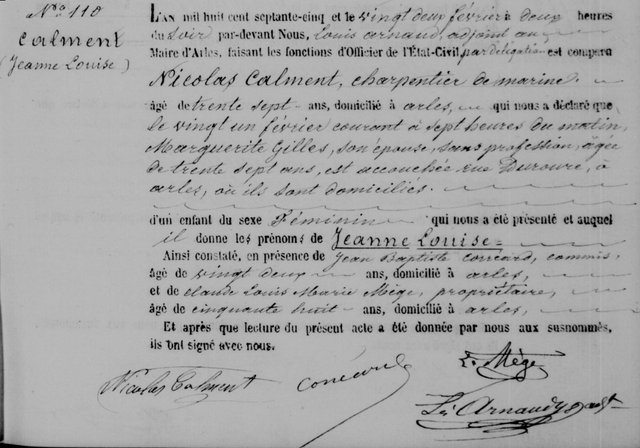 N.° 110
Calment
(Jeanne Louise)
L'AN mil huit cent septante-cinq et le vingt deux février à deux heures
du Soir par-devant Nous, Louis Arnaud, adjoint au
Maire d'Arles, faisant les fonctions d'Officier de l'État-Civil, par délégation est comparu
Nicolas Calment, charpentier de marine
âgé de trente sept ans, domicilié à arles, qui nous a déclaré que
le vingt un février courant à sept heures du matin,
Marguerite Gilles, son épouse, sans profession, âgée
de trente sept ans, est accouchée rue Duroure, à
arles, où ils sont domiciliés.
d'un enfant du sexe Féminin qui nous a été présenté et auquel
il donne les prénoms de Jeanne Louise
Ainsi constaté, en présence de Jean Baptiste Conéard, commis,
âgé de vingt deux ans, domicilié à arles,
et de claude Louis Marie Mège, propriétaire,
âgé de cinquante huit ans, domicilié à arles,
Et après que lecture du présent acte a été donnée par nous aux susnommés,
ils ont signé avec nous.
L. Mège
Nicolas Calment Conéard
Ls Arnaud adjt